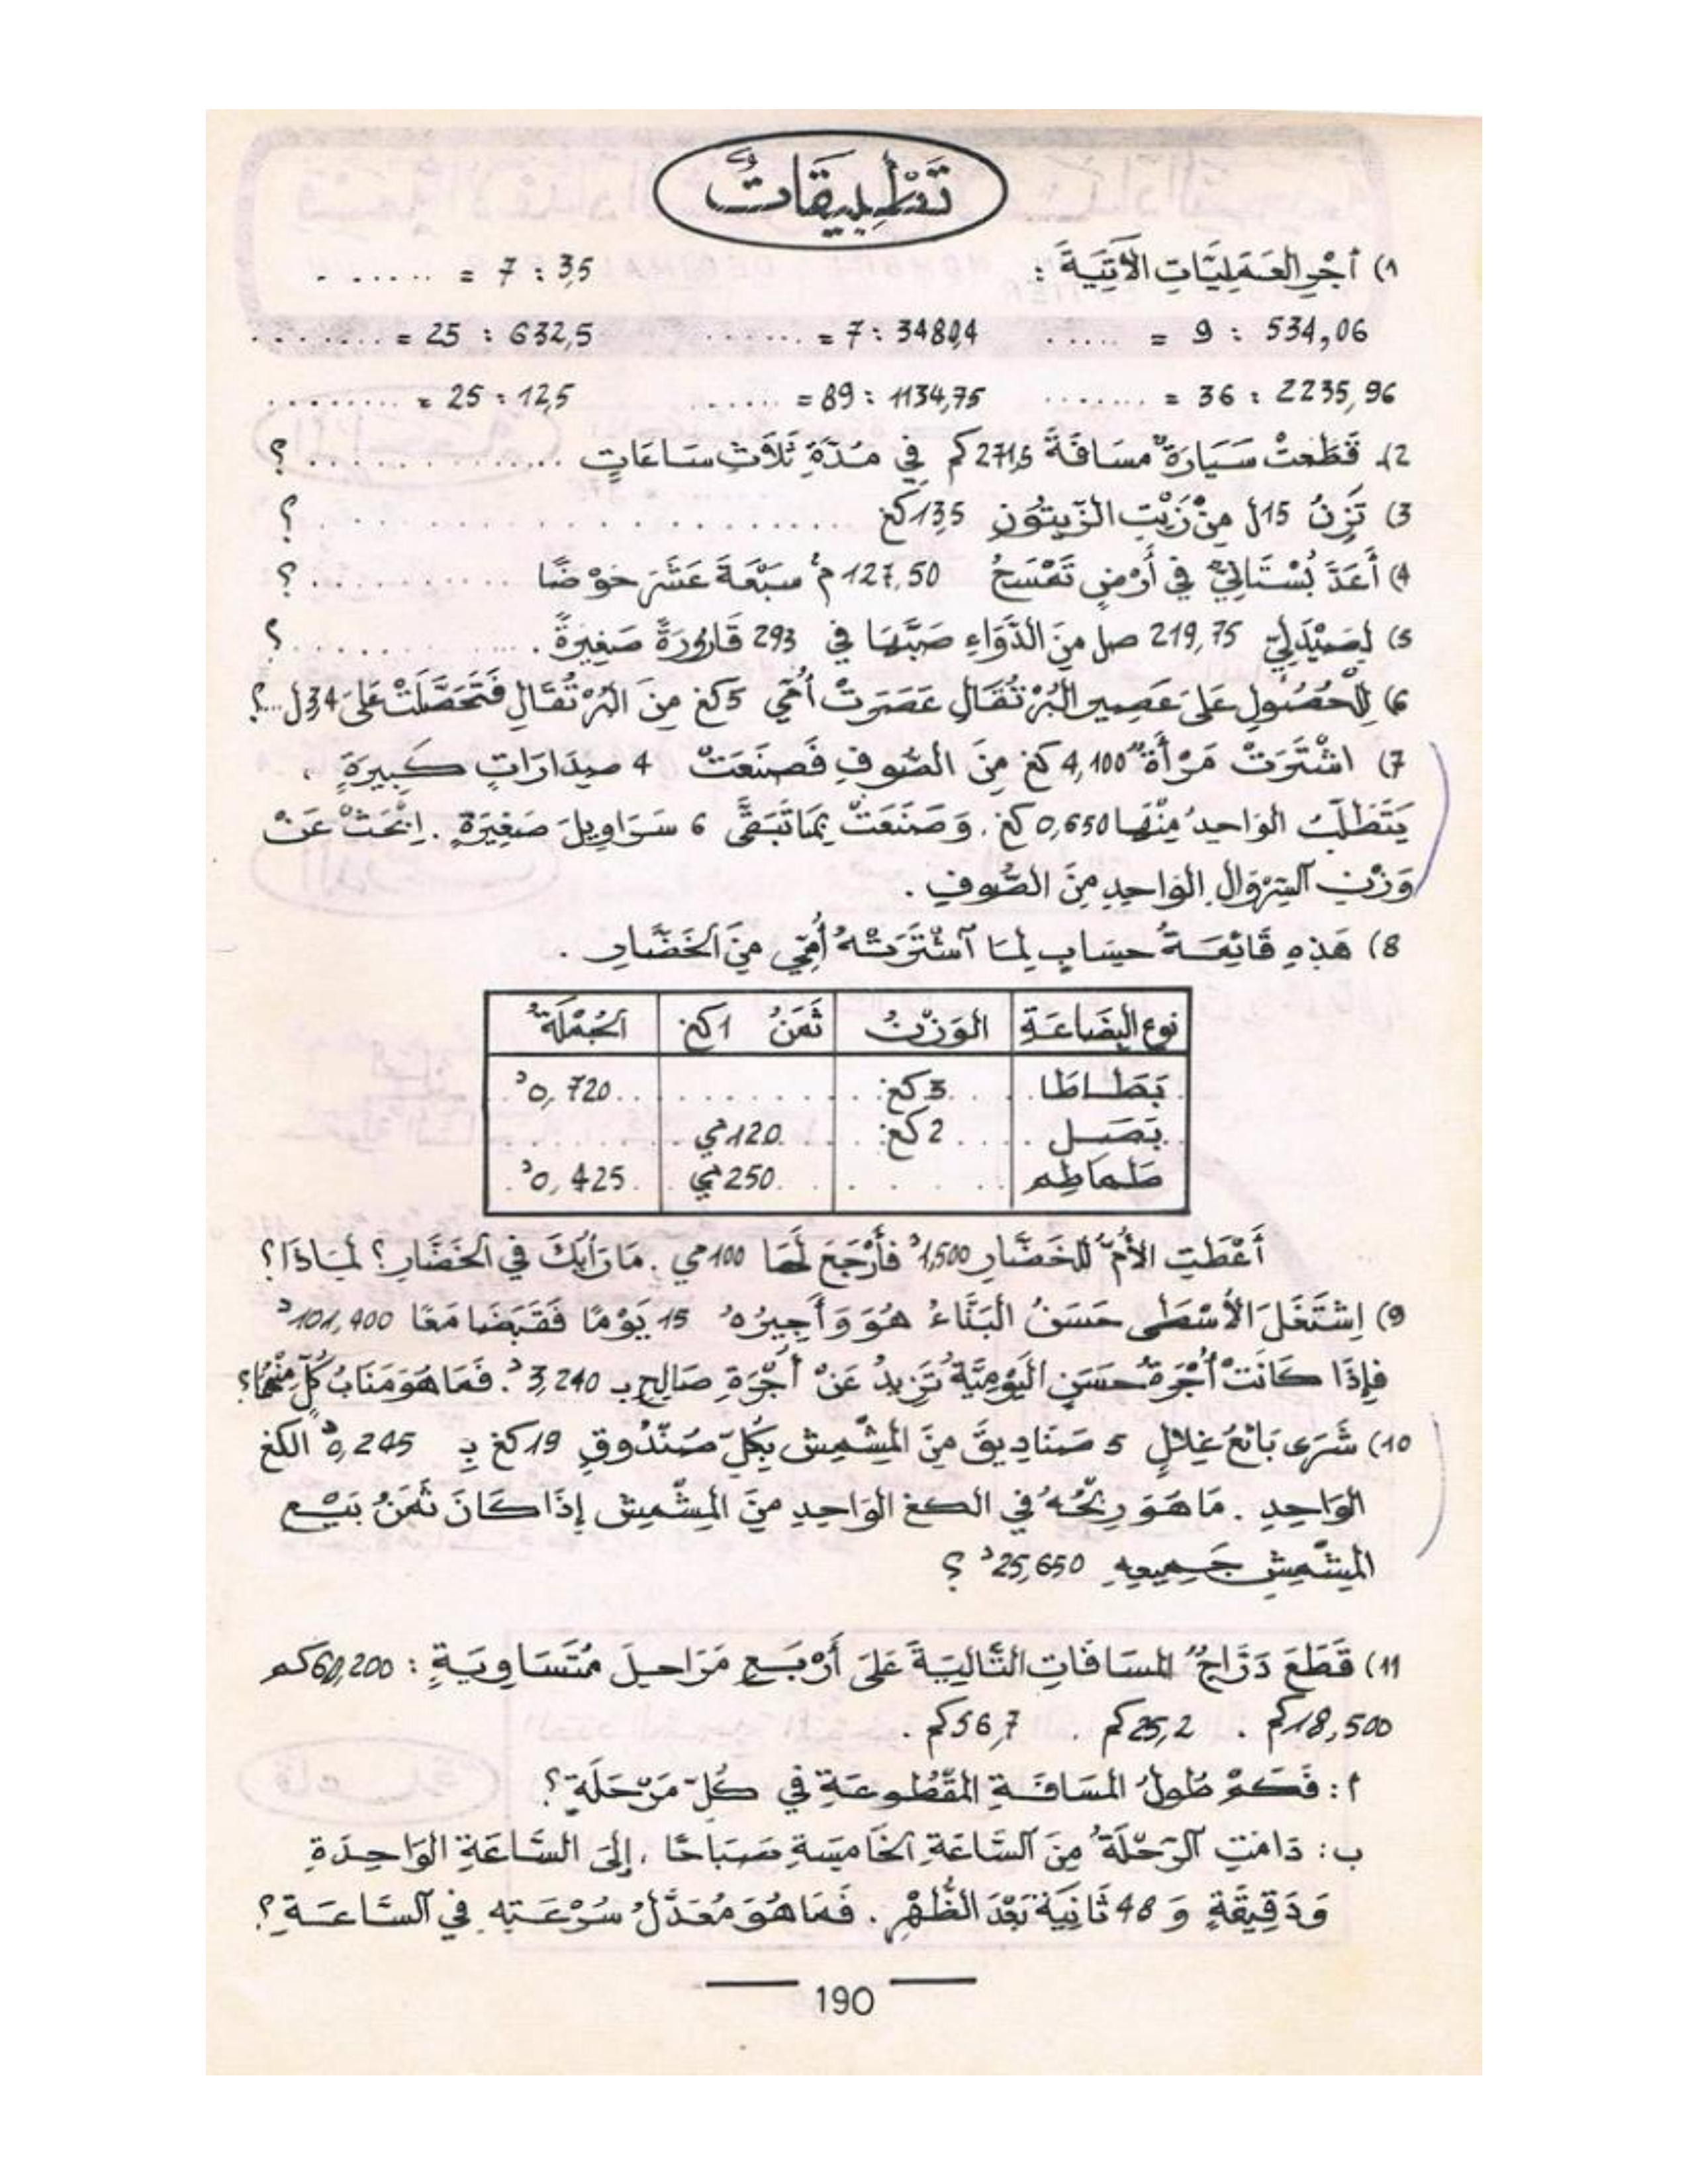 تَطْبِيقَاتٌ
1) أَجْرِ العَمَلِيَّاتِ الآتِيَةَ : 3,5 : 7 = . . . . . .
534,06 : 9 = . . . . . 3480,4 : 7 = . . . . . . 632,5 : 25 = . . . . . . . .
2235,96 : 36 = . . . . . . . 1134,75 : 89 = . . . . . . 12,5 : 25 = . . . . . . . . .
2). قَطَعَتْ سَيَارَةٌ مسَافَةَ 271,5 كم في مُدَّةِ ثَلَاثِ سَاعَاتٍ . . . . . . . . . . . . ؟
3) تَزِنُ 15ل مِنْ زَيْتِ الزَّيتُونِ 13,5 كغ . . . . . . . . . . . . . . . . . . ؟
4) أَعَدَّ بُسْتَانِيٌّ في أَرْضٍ تَمْسَحُ 127,50 م² سَبْعَةَ عَشَرَ حَوْضًا . . . . . . . . . . ؟
5) لِصَيْدَلِيّ 219,75 صل مِنَ الدَّوَاءِ صَبَّهَا في 293 قَارُورَةً صَغِيرَةً . . . . . . . . . . . ؟
6) لِلْحُصُولِ عَلَى عَصِيرِ البُرْتُقَالِ عَصَرَتْ أُمِّي 5 كغ مِنَ البُرْتُقَالِ فَتَحَصَّلَتْ عَلَى 3,4 ل ...؟
7) اشْتَرَتْ مَرْأَةٌ 4,100 كغ مِنَ الصُّوفِ فَصَنَعَتْ 4 صِدَارَاتٍ كَبِيرَةٍ ،
يَتَطَلَّبُ الوَاحِدُ مِنْهَا 0,650 كغ . وَصَنَعَتْ بِمَا تَبَقَّى 6 سَرَاوِيلَ صَغِيرَةٍ . اِبْحَثْ عَنْ
وَزْنِ السِّرْوَالِ الوَاحِدِ مِنَ الصُّوفِ .
8) هَذِهِ قَائِمَةُ حِسَابٍ لِمَا اشْتَرَتْهُ أُمِّي مِنَ الخَضَّارِ .
نوع البِضَاعَةِ الوَزْنُ ثَمَنُ 1كغ الجُمْلَةُ
بَطَاطَا . . . 3 كغ . . . . . . . . . 0,720 د
بَصَل . . . 2 كغ . . . 120 مي . . . . . . .
طَمَاطِم . . . . . . 250 مي . . 0,425 د
أَعْطَتِ الأُمُّ لِلخَضَّارِ 1,500 د فَأَرْجَعَ لَهَا 100 مي . مَا رَأْيُكَ في الخَضَّارِ ؟ لِمَاذَا ؟
9) اِشْتَغَلَ الأُسْطَى حَسَنُ البَنَّاءُ هُوَ وَأَجِيرُهُ 15 يَوْمًا فَقَبَضَا مَعًا 101,400 د
فإِذَا كَانَتْ أُجْرَةُ حَسَنٍ اليَوْمِيَّةُ تَزِيدُ عَنْ أُجْرَةِ صَالِحٍ بـ 3,240 د . فَمَا هُوَ مَنَابُ كُلٍّ مِنْهُمَا ؟
10) شَرَى بَائِعُ غِلَالٍ 5 صَنَادِيقَ مِنَ المِشْمِش بِكُلِّ صَنْدُوقٍ 19 كغ بِـ 0,245 د الكغ
الوَاحِدِ . مَا هُوَ رِبْحُهُ في الكغ الوَاحِدِ مِنَ المِشْمِش إِذَا كَانَ ثَمَنُ بَيْعِ
المِشْمِشِ جَمِيعِهِ 25,650 د ؟
11) قَطَعَ دَرَّاجٌ المسَافَاتِ التَّالِيَةَ عَلَى أَرْبَعِ مَرَاحِلَ مُتَسَاوِيَةٍ : 60,200 كم
18,500 كم . 25,2 كم . 56,7 كم .
أ : فَكَمْ طُولُ المسَافَةِ المَقْطُوعَةِ في كُلِّ مَرْحَلَةٍ ؟
ب : دَامَتِ الرِّحْلَةُ مِنَ السَّاعَةِ الخَامِسَةِ صَبَاحًا ، إِلَى السَّاعَةِ الوَاحِدَةِ
وَدَقِيقَةٍ وَ 48 ثَانِيَةً بَعْدَ الظُّهْرِ . فَمَا هُوَ مُعَدَّلُ سُرْعَتِهِ في السَّاعَةِ ؟
190